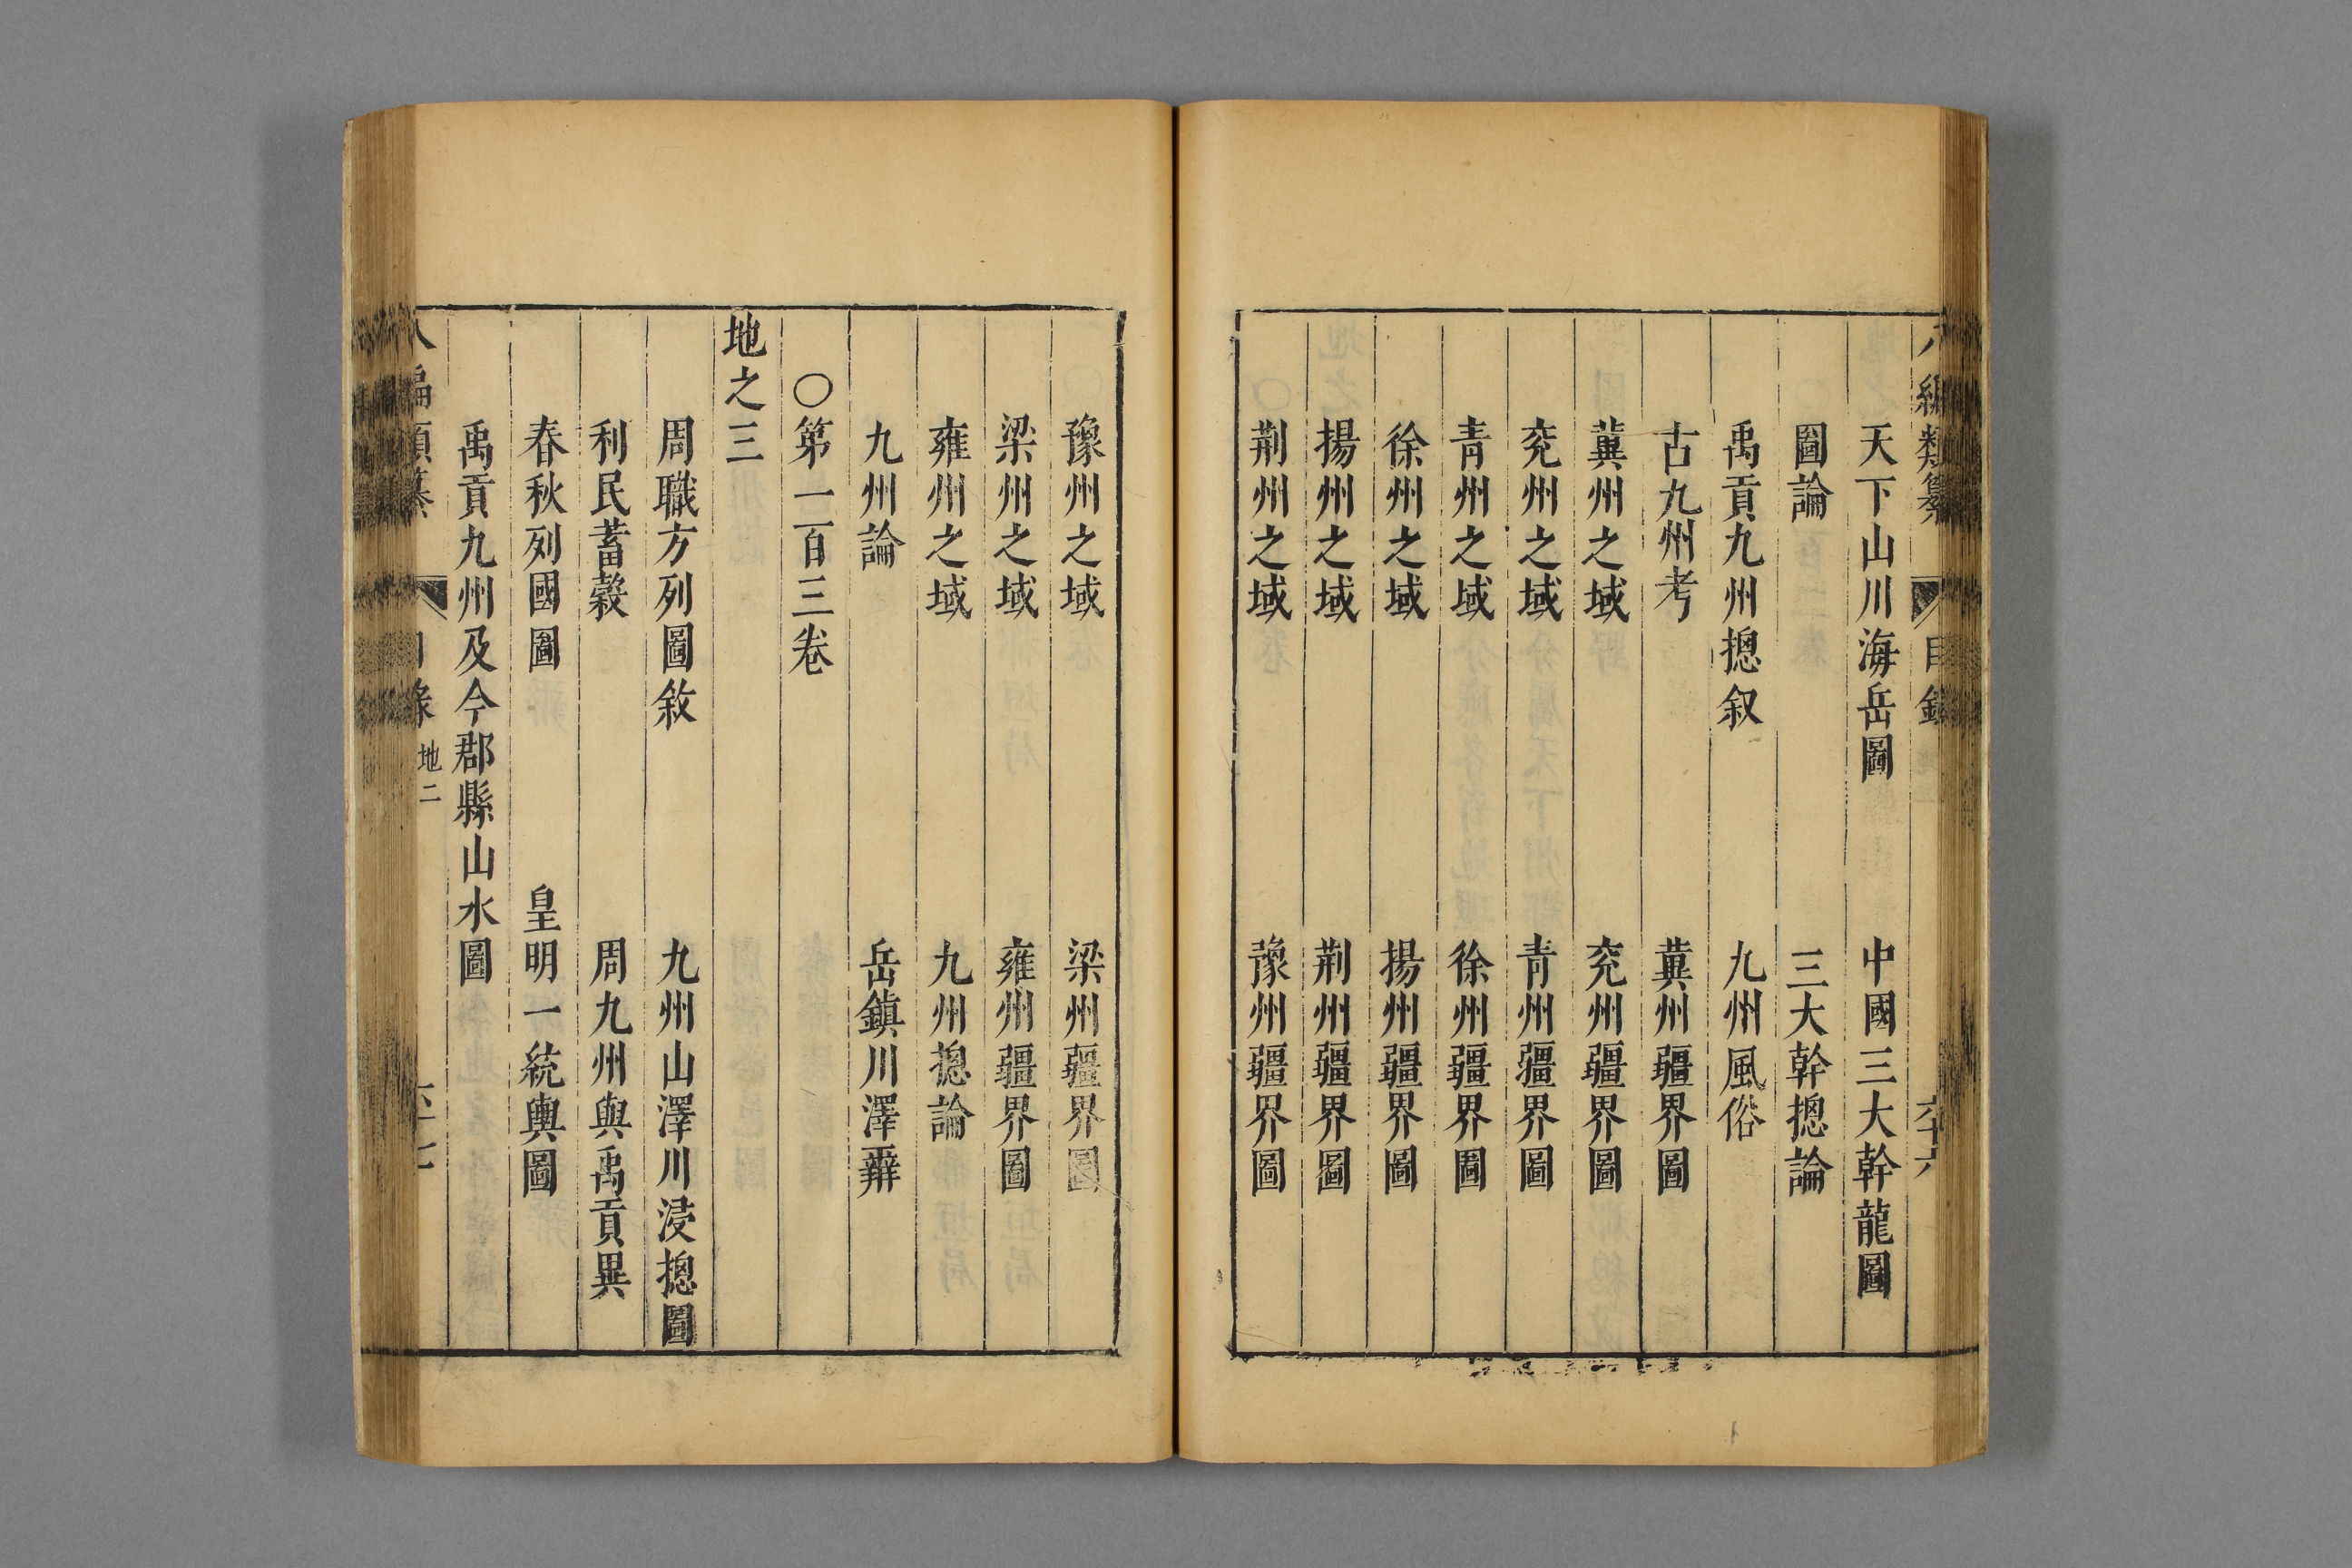 八編類纂 目錄 六十六
天下山川海岳圖 中國三大幹龍圖
圖論 三大幹摠論
禹貢九州摠叙 九州風俗
古九州考 冀州疆界圖
冀州之域 兖州疆界圖
兖州之域 青州疆界圖
青州之域 徐州疆界圖
徐州之域 揚州疆界圖
揚州之域 荆州疆界圖
荆州之域 豫州疆界圖
豫州之域 梁州疆界圖
梁州之域 雍州疆界圖
雍州之域 九州摠論
九州論 岳鎮川澤辨
○第一百三卷
地之三
周職方列圖敘 九州山澤川浸摠圖
利民蓄穀 周九州與禹貢異
春秋列國圖 皇明一統輿圖
禹貢九州及今郡縣山水圖
八編類纂 目錄 地二 六十七